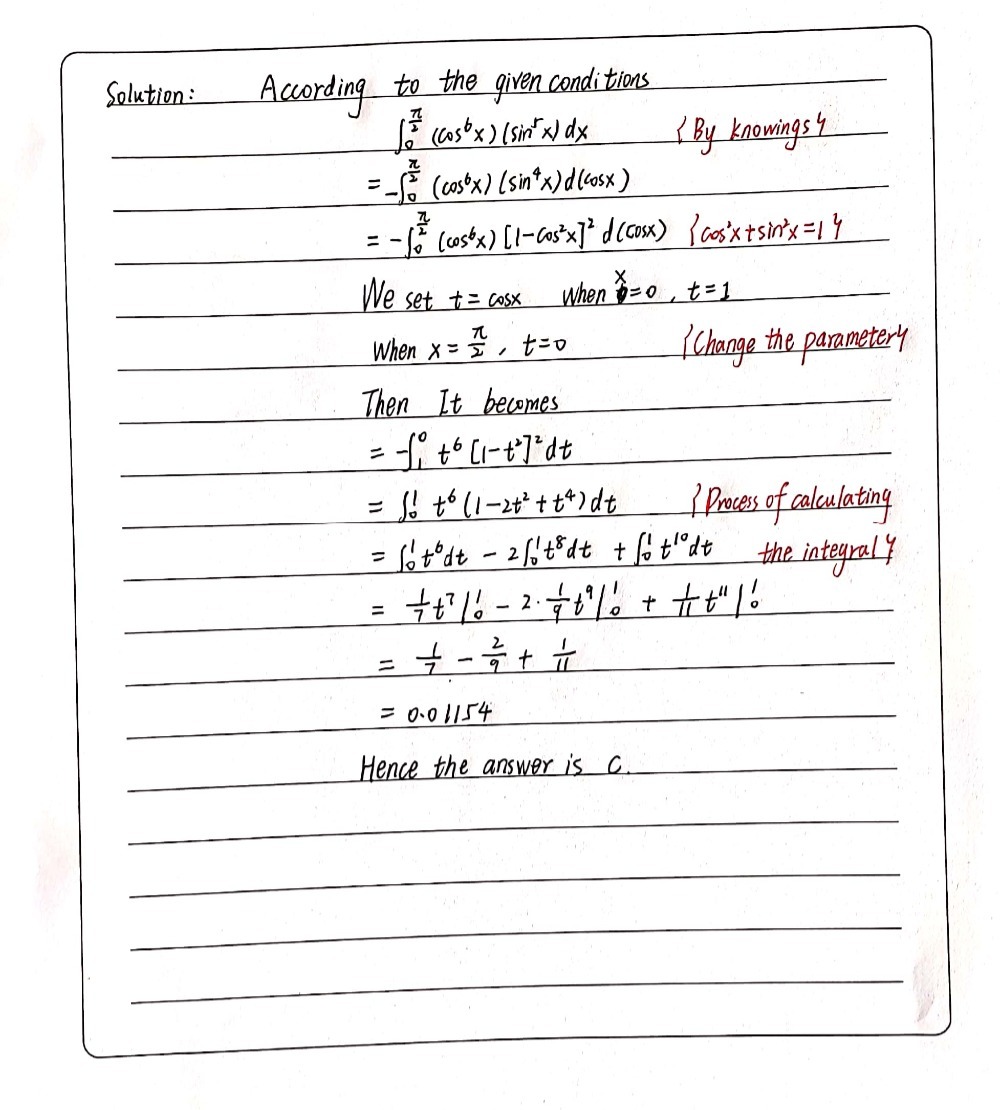 Solution: According to the given conditions
∫₀^{π/2} (cos⁶x)(sin⁵x)dx {By knowings}
= -∫₀^{π/2} (cos⁶x)(sin⁴x)d(cosx)
= -∫₀^{π/2} (cos⁶x)[1-cos²x]² d(cosx) {cos²x+sin²x=1}
We set t = cosx When x=0, t=1
When x = π/2, t=0 {Change the parameter}
Then It becomes
= -∫₁⁰ t⁶[1-t²]²dt
= ∫₀¹ t⁶(1-2t²+t⁴)dt {Process of calculating
= ∫₀¹t⁶dt - 2∫₀¹t⁸dt + ∫₀¹t¹⁰dt the integral}
= 1/7 t⁷|₀¹ - 2·1/9 t⁹|₀¹ + 1/11 t¹¹|₀¹
= 1/7 - 2/9 + 1/11
= 0.01154
Hence the answer is C.